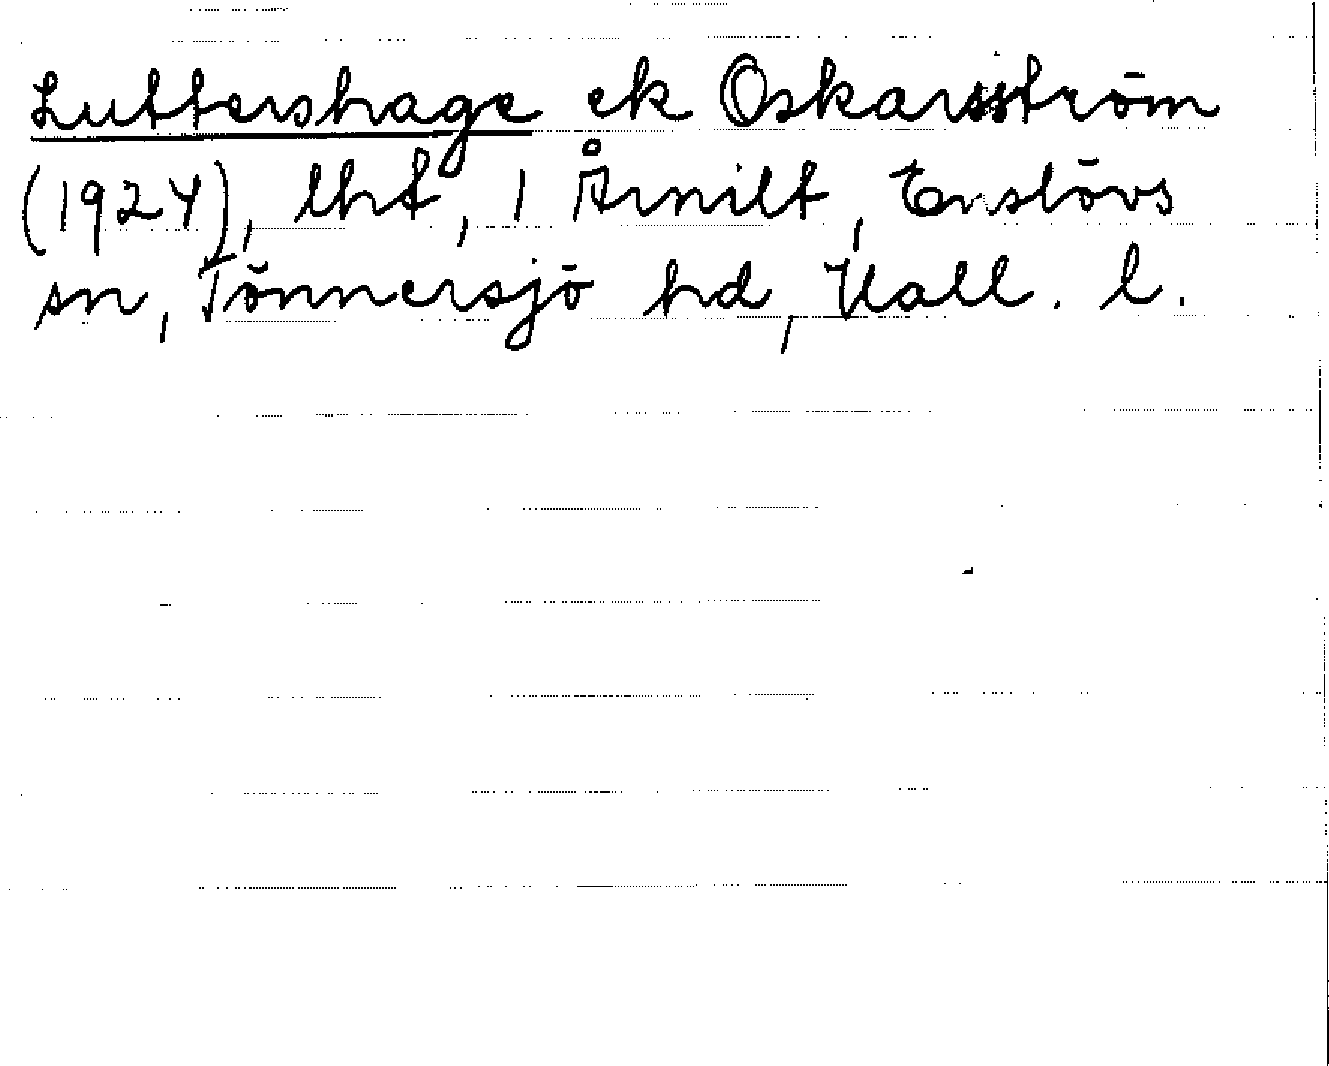 Luttershage ek Oskarsström
(1924), lht, 1 Årnilt, Enslövs
sn, Tönnersjö hd, Hall. l.